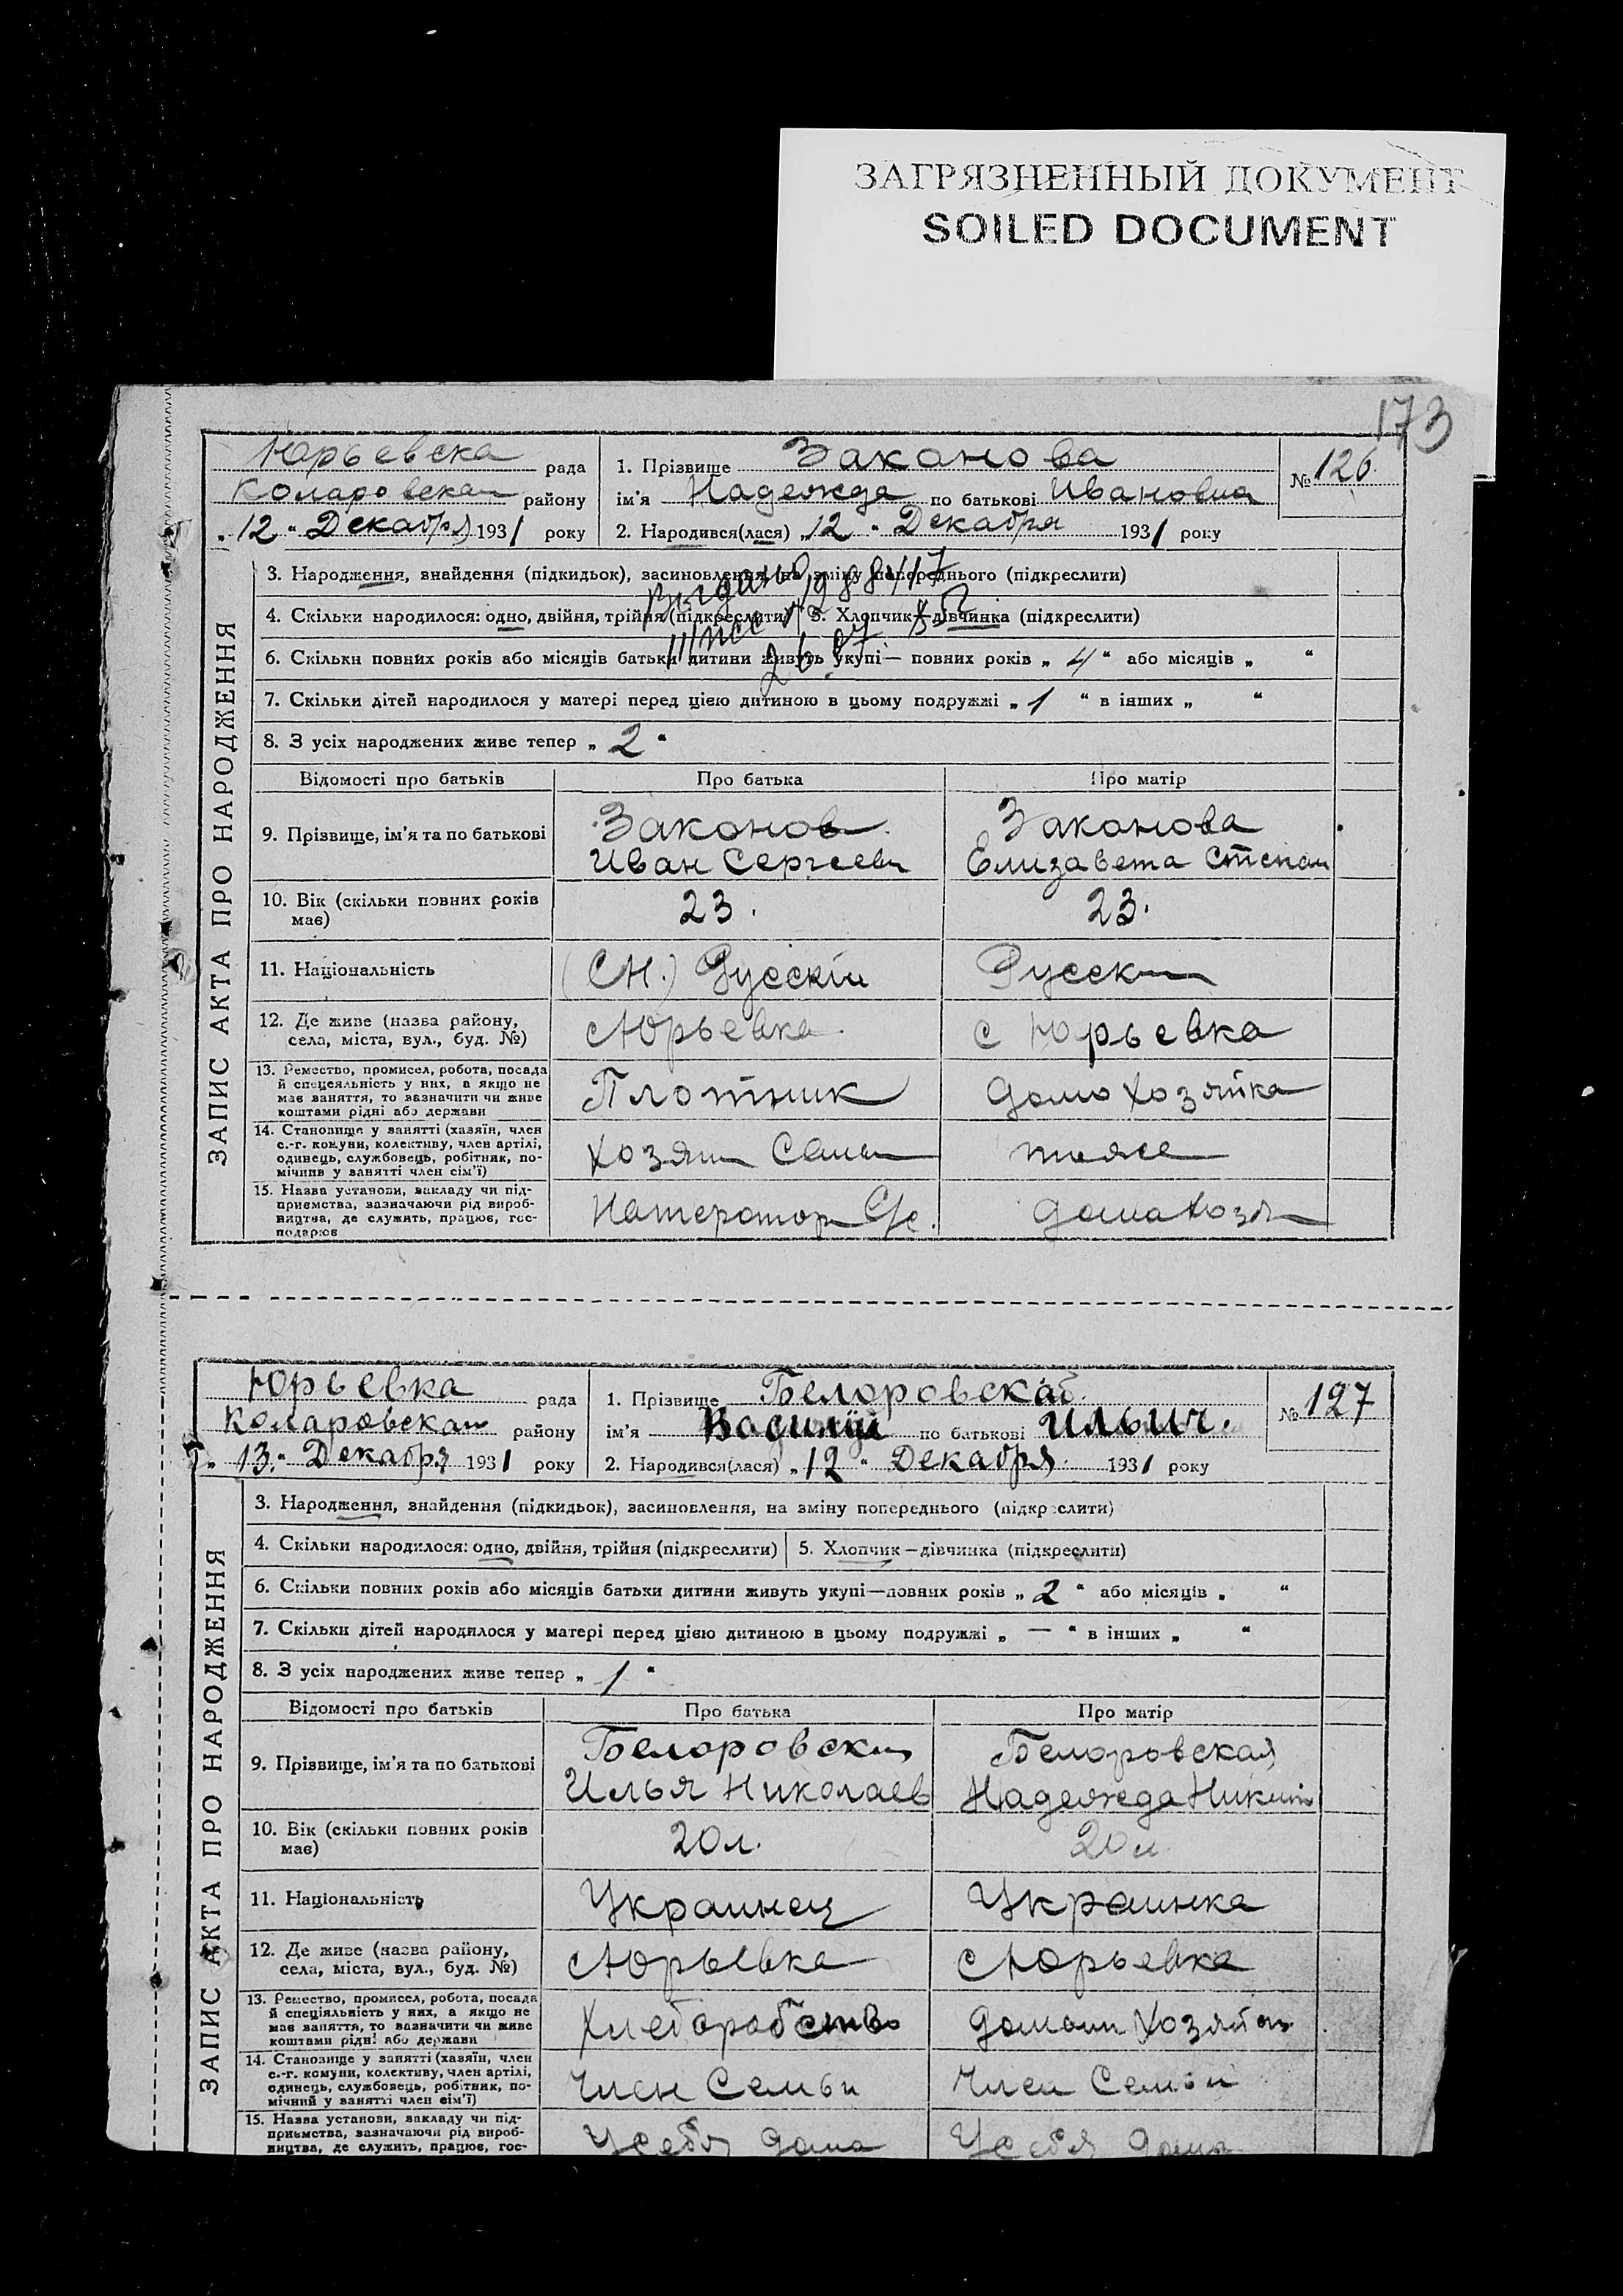 ЗАГРЯЗНЕННЫЙ ДОКУМЕНТ
SOILED DOCUMENT
173
ЗАПИС АКТА ПРО НАРОДЖЕННЯ
Юрьевска рада
Коларовская району
"12" Декабря 1931 року
1. Прізвище Законова
ім'я Надежда по батькові Ивановна
2. Народився(лася) "12" Декабря 1931 року
№ 126.
3. Народження, внайдення (підкидьок), засиновлення, на зміну попереднього (підкреслити)
4. Скільки народилося: одно, двійня, трійня (підкреслити) 5. Хлопчик—дівчинка (підкреслити)
6. Скільки повних років або місяців батьки дитини живуть укупі— повних років „ 4 “ або місяців „ “
7. Скільки дітей народилося у матері перед цією дитиною в цьому подружжі „ 1 “ в інших „ “
8. З усіх народжених живе тепер „ 2 “
Відомості про батьків Про батька Про матір
9. Прізвище, ім'я та по батькові
Законов
Иван Сергеев
Законова
Елизавета Степан
10. Вік (скільки повних років має) 23. 23.
11. Національність (СН.) Русскій Русская
12. Де живе (назва району, села, міста, вул., буд. №) с Юрьевка с Юрьевка
13. Ремество, промисел, робота, посада
й спеціяльність у них, а якщо не
має заняття, то зазначити чи живе
коштами рідні або держави
Плотник домохозяйка
14. Становище у занятті (хазяїн, член
с.-г. комуни, колективу, член артілі,
одинець, службовець, робітник, по-
мічний у занятті член сім'ї)
Хозяин Семьи тоже
15. Назва установи, закладу чи під-
приємства, зазначаючи рід вироб-
ництва, де служить, працює, гос-
подарює
домахозя
ЗАПИС АКТА ПРО НАРОДЖЕННЯ
Юрьевка рада
Коларовская району
"13" Декабря 1931 року
1. Прізвище
ім'я Василий по батькові Ильич.
2. Народився(лася) „12“ Декабря 1931 року
№ 127
3. Народження, знайдення (підкидьок), засиновлення, на зміну попереднього (підкреслити)
4. Скільки народилося: одно, двійня, трійня (підкреслити) 5. Хлопчик—дівчинка (підкреслити)
6. Скільки повних років або місяців батьки дитини живуть укупі—повних років „ 2 “ або місяців „ “
7. Скільки дітей народилося у матері перед цією дитиною в цьому подружжі „ — “ в інших „ “
8. З усіх народжених живе тепер „ 1 “
Відомості про батьків Про батька Про матір
9. Прізвище, ім'я та по батькові
Белоровский
Илья Николаев
Белоровская
Надежда Никит
10. Вік (скільки повних років має) 20 л. 20 л
11. Національність Украинец Украинка
12. Де живе (назва району, села, міста, вул., буд. №) с Юрьевка с Юрьевка
13. Ремество, промисел, робота, посада
й спеціяльність у них, а якщо не
має заняття, то зазначити чи живе
коштами рідні або держави
Хлеборобство
14. Становище у занятті (хазяїн, член
с.-г. комуни, колективу, член артілі,
одинець, службовець, робітник, по-
мічний у занятті член сім'ї)
Член Семьи Член Семьи
15. Назва установи, закладу чи під-
приємства, зазначаючи рід вироб-
ництва, де служить, працює, гос-
У себя дома У себя дома